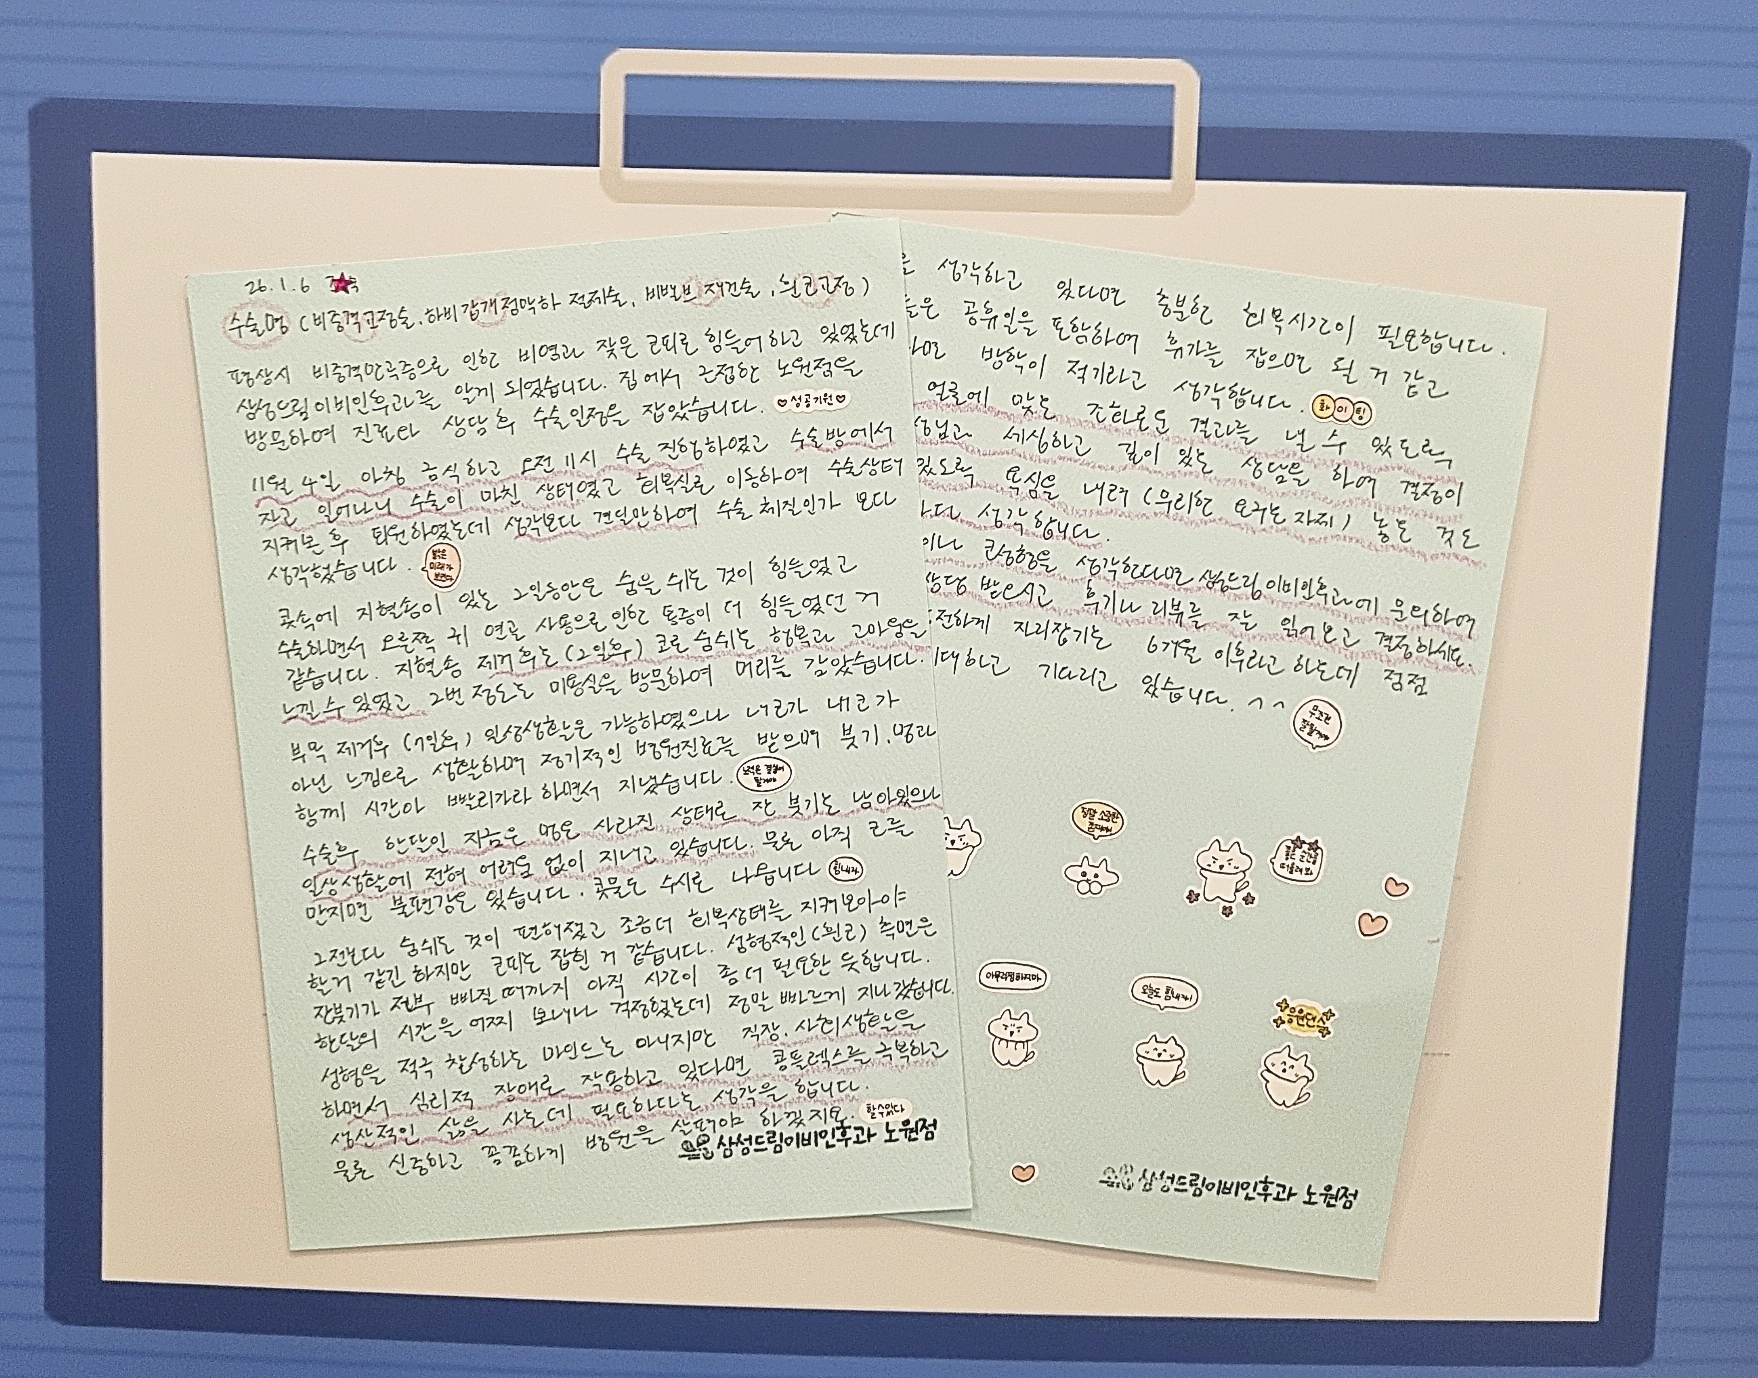 26.1.6
수술명 (비중격교정술, 하비갑개점막하 절제술, 비밸브 재건술, 휜코교정)
평상시 비중격만곡증으로 인한 비염과 잦은 코피로 힘들어하고 있었는데
삼성드림이비인후과를 알게 되었습니다. 집에서 근접한 노원점을
방문하여 진료와 상담 후 수술일정을 잡았습니다. ♥성공기원♥
11월 4일 아침 금식하고 오전 11시 수술 진행하였고 수술방에서
자고 일어나니 수술이 마친 상태였고 회복실로 이동하여 수술상태
지켜본 후 퇴원하였는데 생각보다 견딜만하여 수술 체질인가 보다
생각했습니다. 밝은 미래가 보인다
콧속에 지혈솜이 있는 2일동안은 숨을 쉬는 것이 힘들었고
수술하면서 오른쪽 귀 연골 사용으로 인한 통증이 더 힘들었던 거
같습니다. 지혈솜 제거후는(2일후) 코로 숨쉬는 행복과 고마움을
느낄 수 있었고 2번 정도는 미용실을 방문하여 머리를 감았습니다.
부목 제거후 (7일후) 일상생활은 가능하였으나 내코가 내코가
아닌 느낌으로 생활하며 정기적인 병원진료를 받으며 붓기, 멍과
함께 시간아 빨리가라 하면서 지냈습니다. 노력은 결실이 될거야
수술후 한달인 지금은 멍은 사라진 상태로 잔 붓기는 남아있으나
일상생활에 전혀 어려움 없이 지내고 있습니다. 물론 아직 코를
만지면 불편감은 있습니다. 콧물도 수시로 나옵니다 힘내라
그전보다 숨쉬는 것이 편해졌고 조금더 회복상태를 지켜보아야
할거 같긴 하지만 코피는 잡힌 거 같습니다. 성형적인(휜코) 측면은
잔붓기가 전부 빠질때까지 아직 시간이 좀 더 필요한 듯합니다.
한달의 시간을 어찌 보내나 걱정했는데 정말 빠르게 지나갔습니다.
성형을 적극 찬성하는 마인드는 아니지만 직장, 사회생활을
하면서 심리적 장애로 작용하고 있다면 콤플렉스를 극복하고
생산적인 삶을 사는데 필요하다는 생각을 합니다.
물론 신중하고 꼼꼼하게 병원을 살펴야 하겠지요. 할수있다
삼성드림이비인후과 노원점
생각하고 있다면 충분한 회복시간이 필요합니다.
들은 공휴일을 포함하여 휴가를 잡으면 될 거 같고
방학이 적기라고 생각합니다. 화이팅
얼굴에 맞는 조화로운 결과를 낼 수 있도록
세심하고 깊이 있는 상담을 하여 결정이
있도록 욕심을 내려 (무리한 요구는 자제) 놓는 것도
생각합니다.
이나 코성형을 생각한다면 삼성드림이비인후과에 문의하여
상담 받으시고 후기나 리뷰를 잘 읽어보고 결정하시죠.
전하게 자리잡기는 6개월 이후라고 하는데 점점
대하고 기다리고 있습니다. ^^ 무조건 잘될거야
정말 소중한 존재야
아무걱정하지마
오늘도 힘내자!
응원댄스
삼성드림이비인후과 노원점